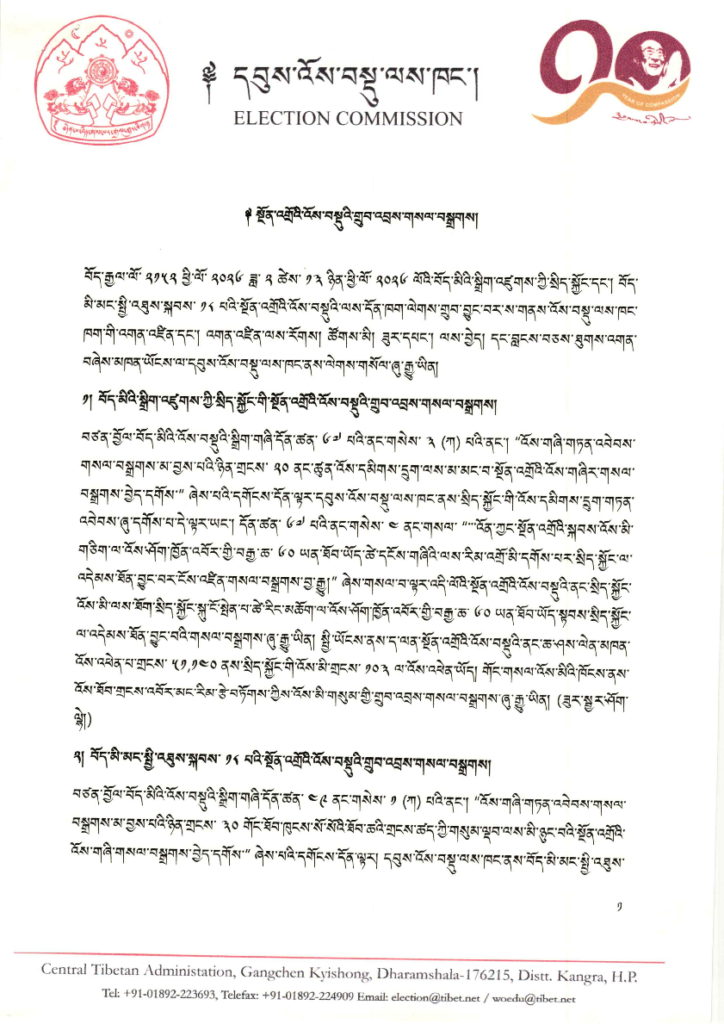 ༄ དབུས་འོས་བསྡུ་ལས་ཁང་།
ELECTION COMMISSION
YEAR OF COMPASSION
༄ སྔོན་འགྲོའི་འོས་བསྡུའི་གྲུབ་འབྲས་གསལ་བསྒྲགས།
བོད་རྒྱལ་ལོ་ ༢༡༥༢ ཕྱི་ལོ་ ༢༠༢༦ ཟླ་ ༢ ཚེས་ ༡༣ ཉིན་ཕྱི་ལོ་ ༢༠༢༦ ལོའི་བོད་མིའི་སྒྲིག་འཛུགས་ཀྱི་སྲིད་སྐྱོང་དང་། བོད་
མི་མང་སྤྱི་འཐུས་སྐབས་ ༡༨ པའི་སྔོན་འགྲོའི་འོས་བསྡུའི་ལས་དོན་ཁག་ལེགས་གྲུབ་བྱུང་བར་ས་གནས་འོས་བསྡུ་ལས་ཁང་
ཁག་གི་འགན་འཛིན་དང་། འགན་འཛིན་ལས་རོགས། ཚོགས་མི། ཟུར་དཔང་། ལས་བྱེད། དང་བླངས་བཅས་ཐུགས་འགན་
བཞེས་མཁན་ཡོངས་ལ་དབུས་འོས་བསྡུ་ལས་ཁང་ནས་ལེགས་གསོལ་ཞུ་རྒྱུ་ཡིན།
༡། བོད་མིའི་སྒྲིག་འཛུགས་ཀྱི་སྲིད་སྐྱོང་གི་སྔོན་འགྲོའི་འོས་བསྡུའི་གྲུབ་འབྲས་གསལ་བསྒྲགས།
བཙན་བྱོལ་བོད་མིའི་འོས་བསྡུའི་སྒྲིག་གཞི་དོན་ཚན་ ༦༧ པའི་ནང་གསེས་ ༣ (ཀ) པའི་ནང་། “འོས་གཞི་གཏན་འབེབས་
གསལ་བསྒྲགས་མ་བྱས་པའི་ཉིན་གྲངས་ ༢༠ ནང་ཚུན་འོས་དམིགས་དྲུག་ལས་མ་མང་བ་སྔོན་འགྲོའི་འོས་གཞིར་གསལ་
བསྒྲགས་བྱེད་དགོས་” ཞེས་པའི་དགོངས་དོན་ལྟར་དབུས་འོས་བསྡུ་ལས་ཁང་ནས་སྲིད་སྐྱོང་གི་འོས་དམིགས་དྲུག་གཏན་
འབེབས་ཞུ་དགོས་པ་དེ་ལྟར་ཡང་། དོན་ཚན་ ༦༧ པའི་ནང་གསེས་ ༤ ནང་གསལ་ “་་་འོན་ཀྱང་སྔོན་འགྲོའི་སྐབས་འོས་མི་
གཅིག་ལ་འོས་ཤོག་ཁྱོན་འབོར་གྱི་བརྒྱ་ཆ་ ༦༠ ཡན་ཐོབ་ཡོད་ཚེ་དངོས་གཞིའི་ལས་རིམ་འགྲོ་མི་དགོས་པར་སྲིད་སྐྱོང་ལ་
འདེམས་ཐོན་བྱུང་བར་ངོས་འཛིན་གསལ་བསྒྲགས་བྱ་རྒྱུ།” ཞེས་གསལ་བ་ལྟར་འདི་ལོའི་སྔོན་འགྲོའི་འོས་བསྡུའི་ནང་སྲིད་སྐྱོང་
འོས་མི་ལས་ཐོག་སྲིད་སྐྱོང་སྐུ་ངོ་སྤེན་པ་ཚེ་རིང་མཆོག་ལ་འོས་ཤོག་ཁྱོན་འབོར་གྱི་བརྒྱ་ཆ་ ༦༠ ཡན་ཐོབ་ཡོད་སྟབས་སྲིད་སྐྱོང་
ལ་འདེམས་ཐོན་བྱུང་བའི་གསལ་བསྒྲགས་ཞུ་རྒྱུ་ཡིན། སྤྱི་ཡོངས་ནས་ད་ལན་སྔོན་འགྲོའི་འོས་བསྡུའི་ནང་ཆ་ཤས་ལེན་མཁན་
འོས་འཕེན་པ་གྲངས་ ༥༡,༡༤༠ ནས་སྲིད་སྐྱོང་གི་འོས་མི་གྲངས་ ༡༠༣ ལ་འོས་འཕེན་ཡོད། གོང་གསལ་འོས་མིའི་ཁོངས་ནས་
འོས་ཐོབ་གྲངས་འབོར་མང་རིམ་རྩེ་བཏོགས་ཀྱིས་འོས་མི་གསུམ་གྱི་གྲུབ་འབྲས་གསལ་བསྒྲགས་ཞུ་རྒྱུ་ཡིན། (ཟུར་སྦྱར་ཤོག་
ལྷེ།)
༢། བོད་མི་མང་སྤྱི་འཐུས་སྐབས་ ༡༨ པའི་སྔོན་འགྲོའི་འོས་བསྡུའི་གྲུབ་འབྲས་གསལ་བསྒྲགས།
བཙན་བྱོལ་བོད་མིའི་འོས་བསྡུའི་སྒྲིག་གཞི་དོན་ཚན་ ༤༩ ནང་གསེས་ ༡ (ཀ) པའི་ནང་། “འོས་གཞི་གཏན་འབེབས་གསལ་
བསྒྲགས་མ་བྱས་པའི་ཉིན་གྲངས་ ༣༠ གོང་ཐོབ་ཁུངས་སོ་སོའི་ཐོབ་ཆའི་གྲངས་ཚད་ཀྱི་གསུམ་ལྡབ་ལས་མི་ཉུང་བའི་སྔོན་འགྲོའི་
འོས་གཞི་གསལ་བསྒྲགས་བྱེད་དགོས་” ཞེས་པའི་དགོངས་དོན་ལྟར། དབུས་འོས་བསྡུ་ལས་ཁང་ནས་བོད་མི་མང་སྤྱི་འཐུས་
༡
Central Tibetan Administation, Gangchen Kyishong, Dharamshala-176215, Distt. Kangra, H.P.
Tel: +91-01892-223693, Telefax: +91-01892-224909 Email: election@tibet.net / woedu@tibet.net